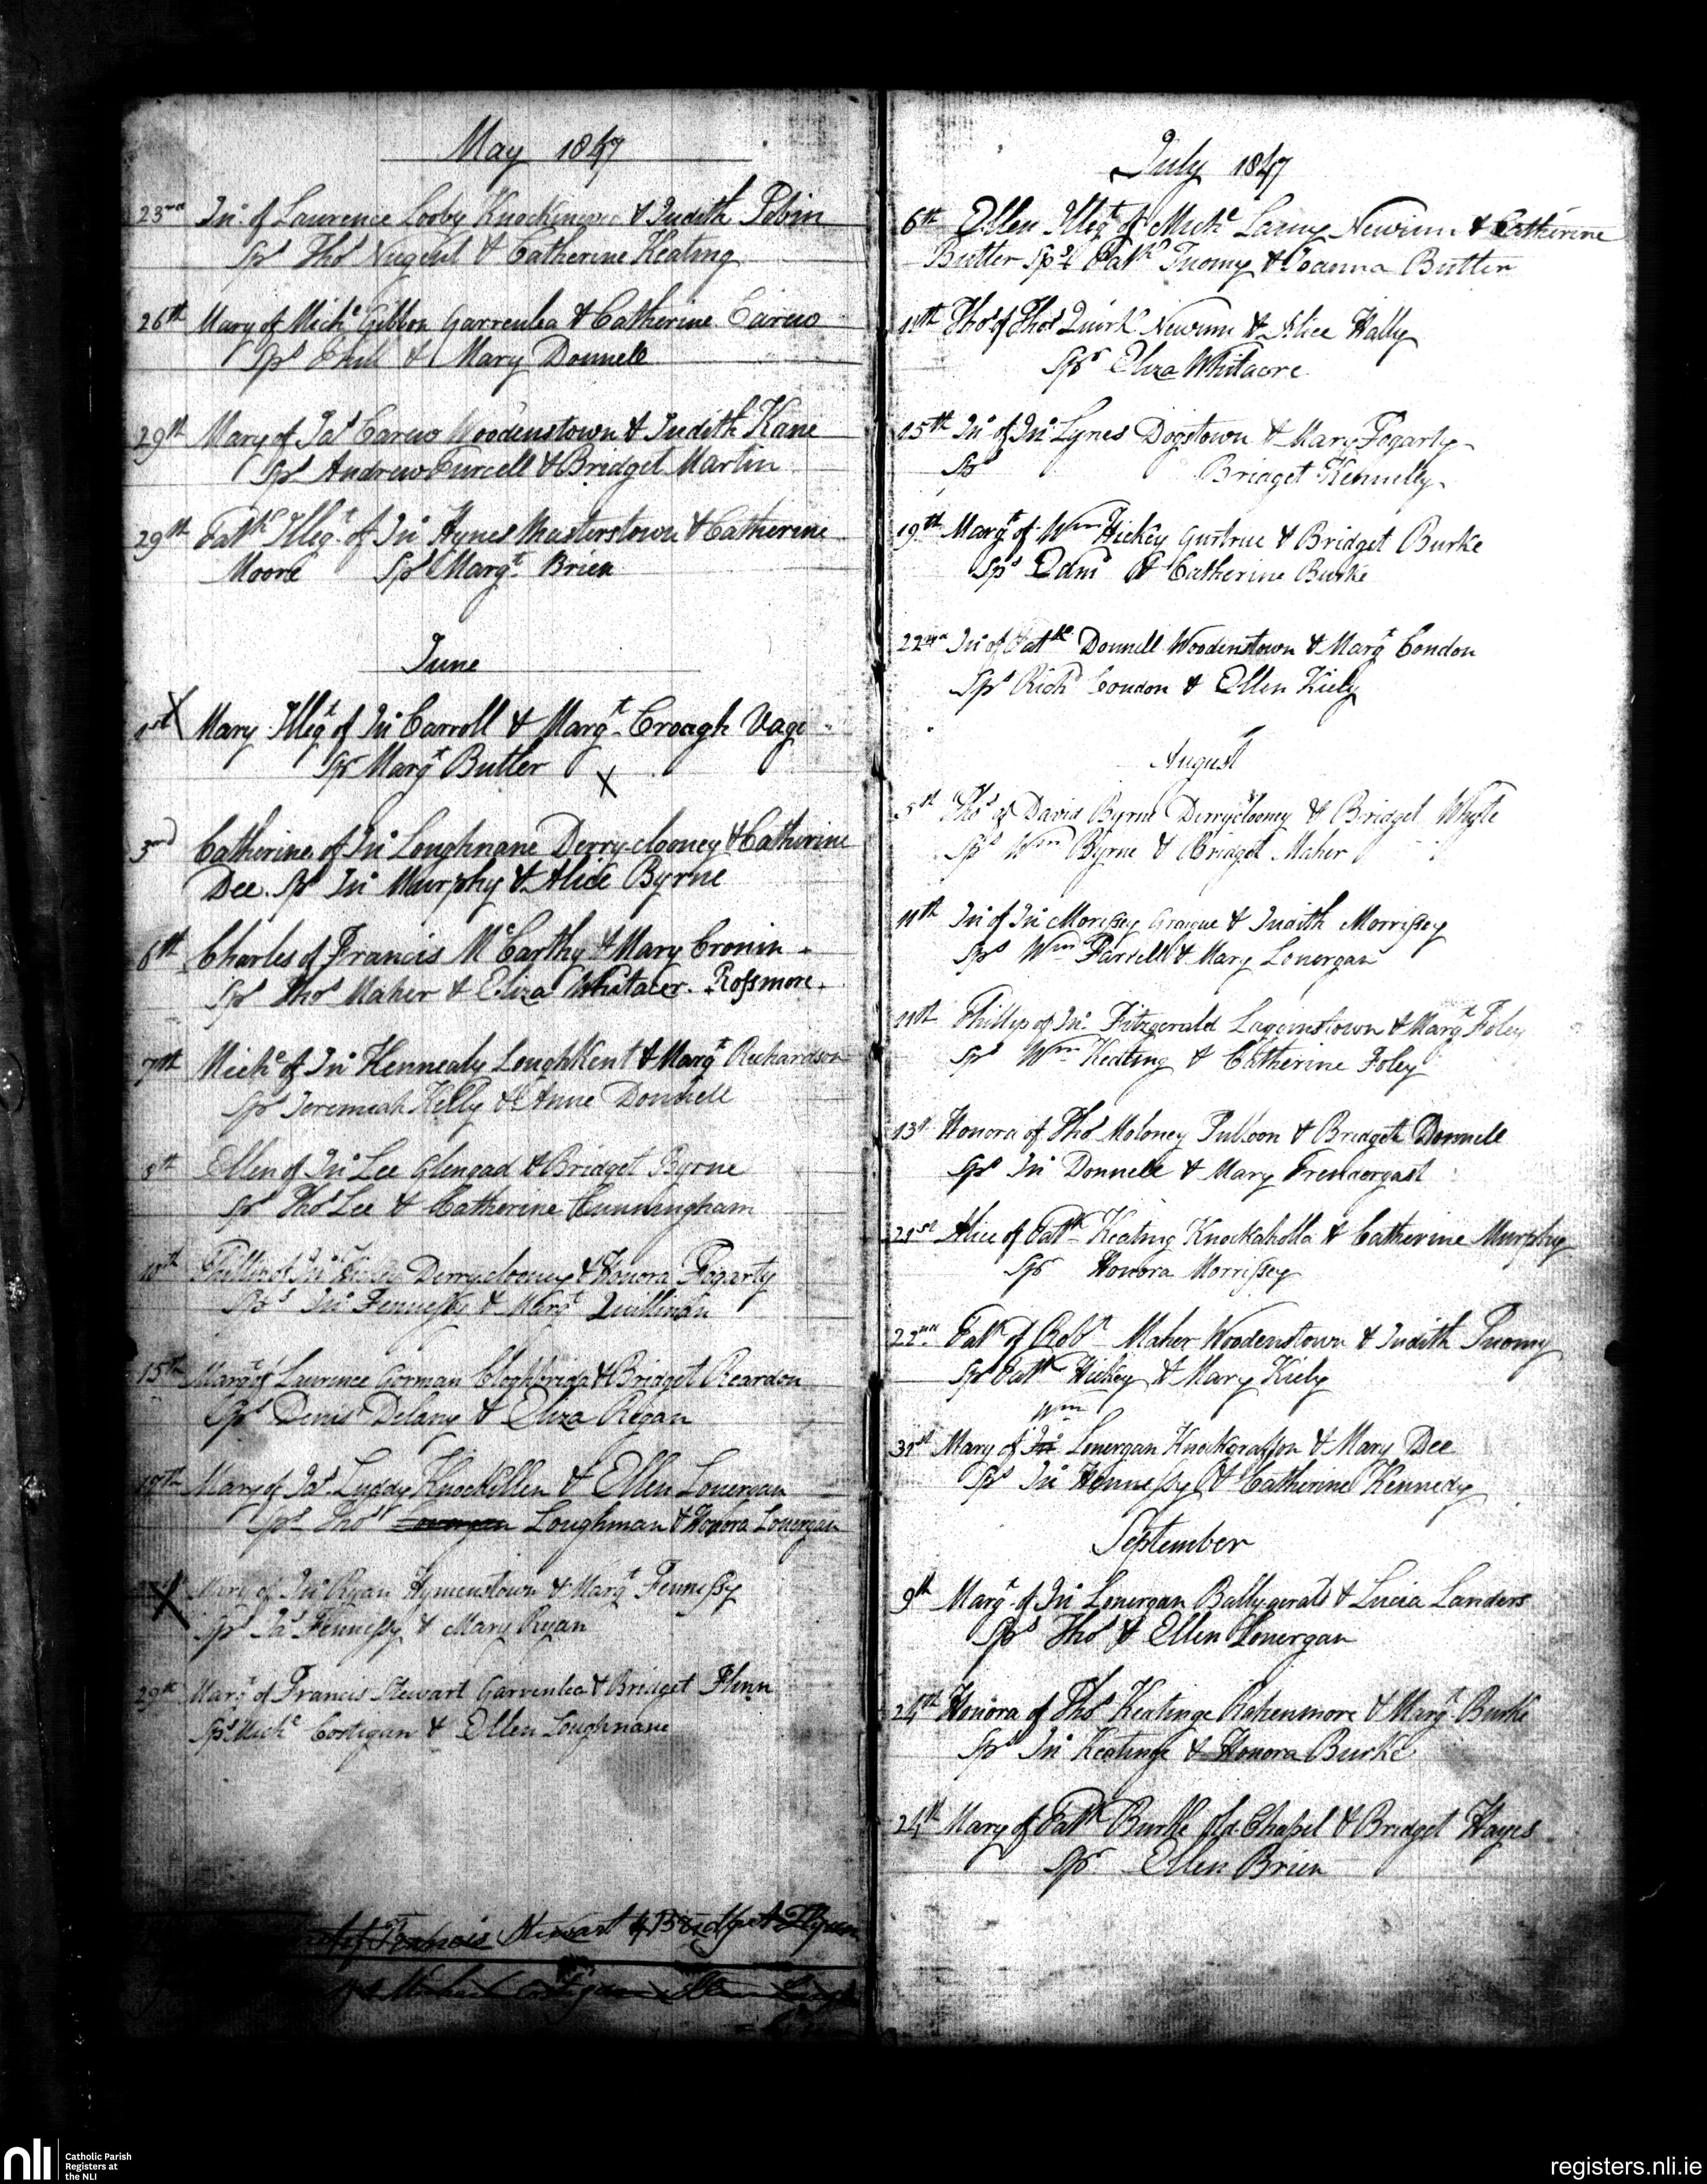 May 1847
23rd Jno of Laurence Looby & Judith Tobin
Sps Thos Nugent & Catherine Keating
26th Mary of Michl Gibbon Garrenlea & Catherine Carew
Sps Phil & Mary Donnell
29th Mary of Jas Carew Woodenstown & Judith Kane
Sps Andrew Purcell & Bridget Martin
29th Patk Illegt of Jno Hynes Masterstown & Catherine
Moore Spr Margt Brien
June
1st X Mary Illegt of Jno Carroll & Margt Croagh Vagi
Spr Margt Butler X
3rd Catherine of Jno Loughnane Derryclooney & Catherine
Dee. Sps Jno Murphy & Alice Byrne
6th Charles of Francis McCarthy & Mary Cronin -
Sps Thos Maher & Eliza Whitacer. Rossmore.
7th Michl of Jno Kennealy LoughKent & Margt Richardson
Sps Jeremiah Kelly & Anne Donnell
8th Ellen of Jno Lee Glengad & Bridget Byrne
Sps Thos Lee & Catherine Cunningham
10th Phillip of Jno Derryclooney & Honora Fogarty
Sps Jno Fennessy & Margt Quillinan
15th Margt of Laurence Gorman Cloghbriga & Bridget Reardon
Sps Denis Delany & Eliza Regan
17th Mary of Jas Luddy Knockillen & Ellen Lonergan
Sps Thos Loughman & Honora Lonergan
X Mary of Jno Ryan Hymenstown & Margt Fennessy
Sps Jas Fennessy & Mary Ryan
29th Margt of Francis Stewart Garrenlea & Bridget Flynn
Sps Michl Costigan & Ellen Loughnane
of Francis Stewart & Bridget Flynn
July 1847
6th Ellen Illegt of Michl Newinn & Catherine
Butter Sps Patk Tuomy & Joanna Butter
11th Thos of Thos Quirk Newinn & Alice Hally
Spr Eliza Whitacre
15th Jno of Jno Lynes Dogstown & Mary Fogarty
Sps Bridget Kennelly
19th Margt of Wm Hickey Gurtrue & Bridget Burke
Sps Edmd & Catherine Burke
22nd Jno of Patk Donnell Woodenstown & Margt Condon
Sps Richd Condon & Ellen Kiely
August
5st Thos of David Byrne Derryclooney & Bridget Whyte
Sps Wm Byrne & Bridget Maher
11th Jno of Jno Morissey Graigue & Judith Morrissey
Sps Wm Farrell & Mary Lonergan
11th Phillip of Jno Fitzgerald Lagenstown & Margt Foley
Sps Wm Keating & Catherine Foley
13t Honora of Thos Moloney Pulloon & Bridget Donnell
Sps Jno Donnell & Mary Prendergast
21st Alice of Patk Keating Knockaholla & Catherine Murphy
Spr Honora Morrissey
22nd Patk of Robt Maher Woodenstown & Judith Tuomy
Sps Patk Hickey & Mary Kiely
Wm
31st Mary of Jno Lonergan Knockgraffon & Mary Dee
Sps Jno Hennessy & Catherine Kennedy
September
9th Margt of Jno Lonergan Ballygerald & Lucia Landers
Sps Thos & Ellen Lonergan
24th Honora of Thos Keatinge Rahenmore & Margt Burke
Sps Jno Keatinge & Honora Burke
24th Mary of Patk Burke Old Chapel & Bridget Hayes
Spr Ellen Brien
nli
Catholic Parish
Registers at
the NLI
registers.nli.ie